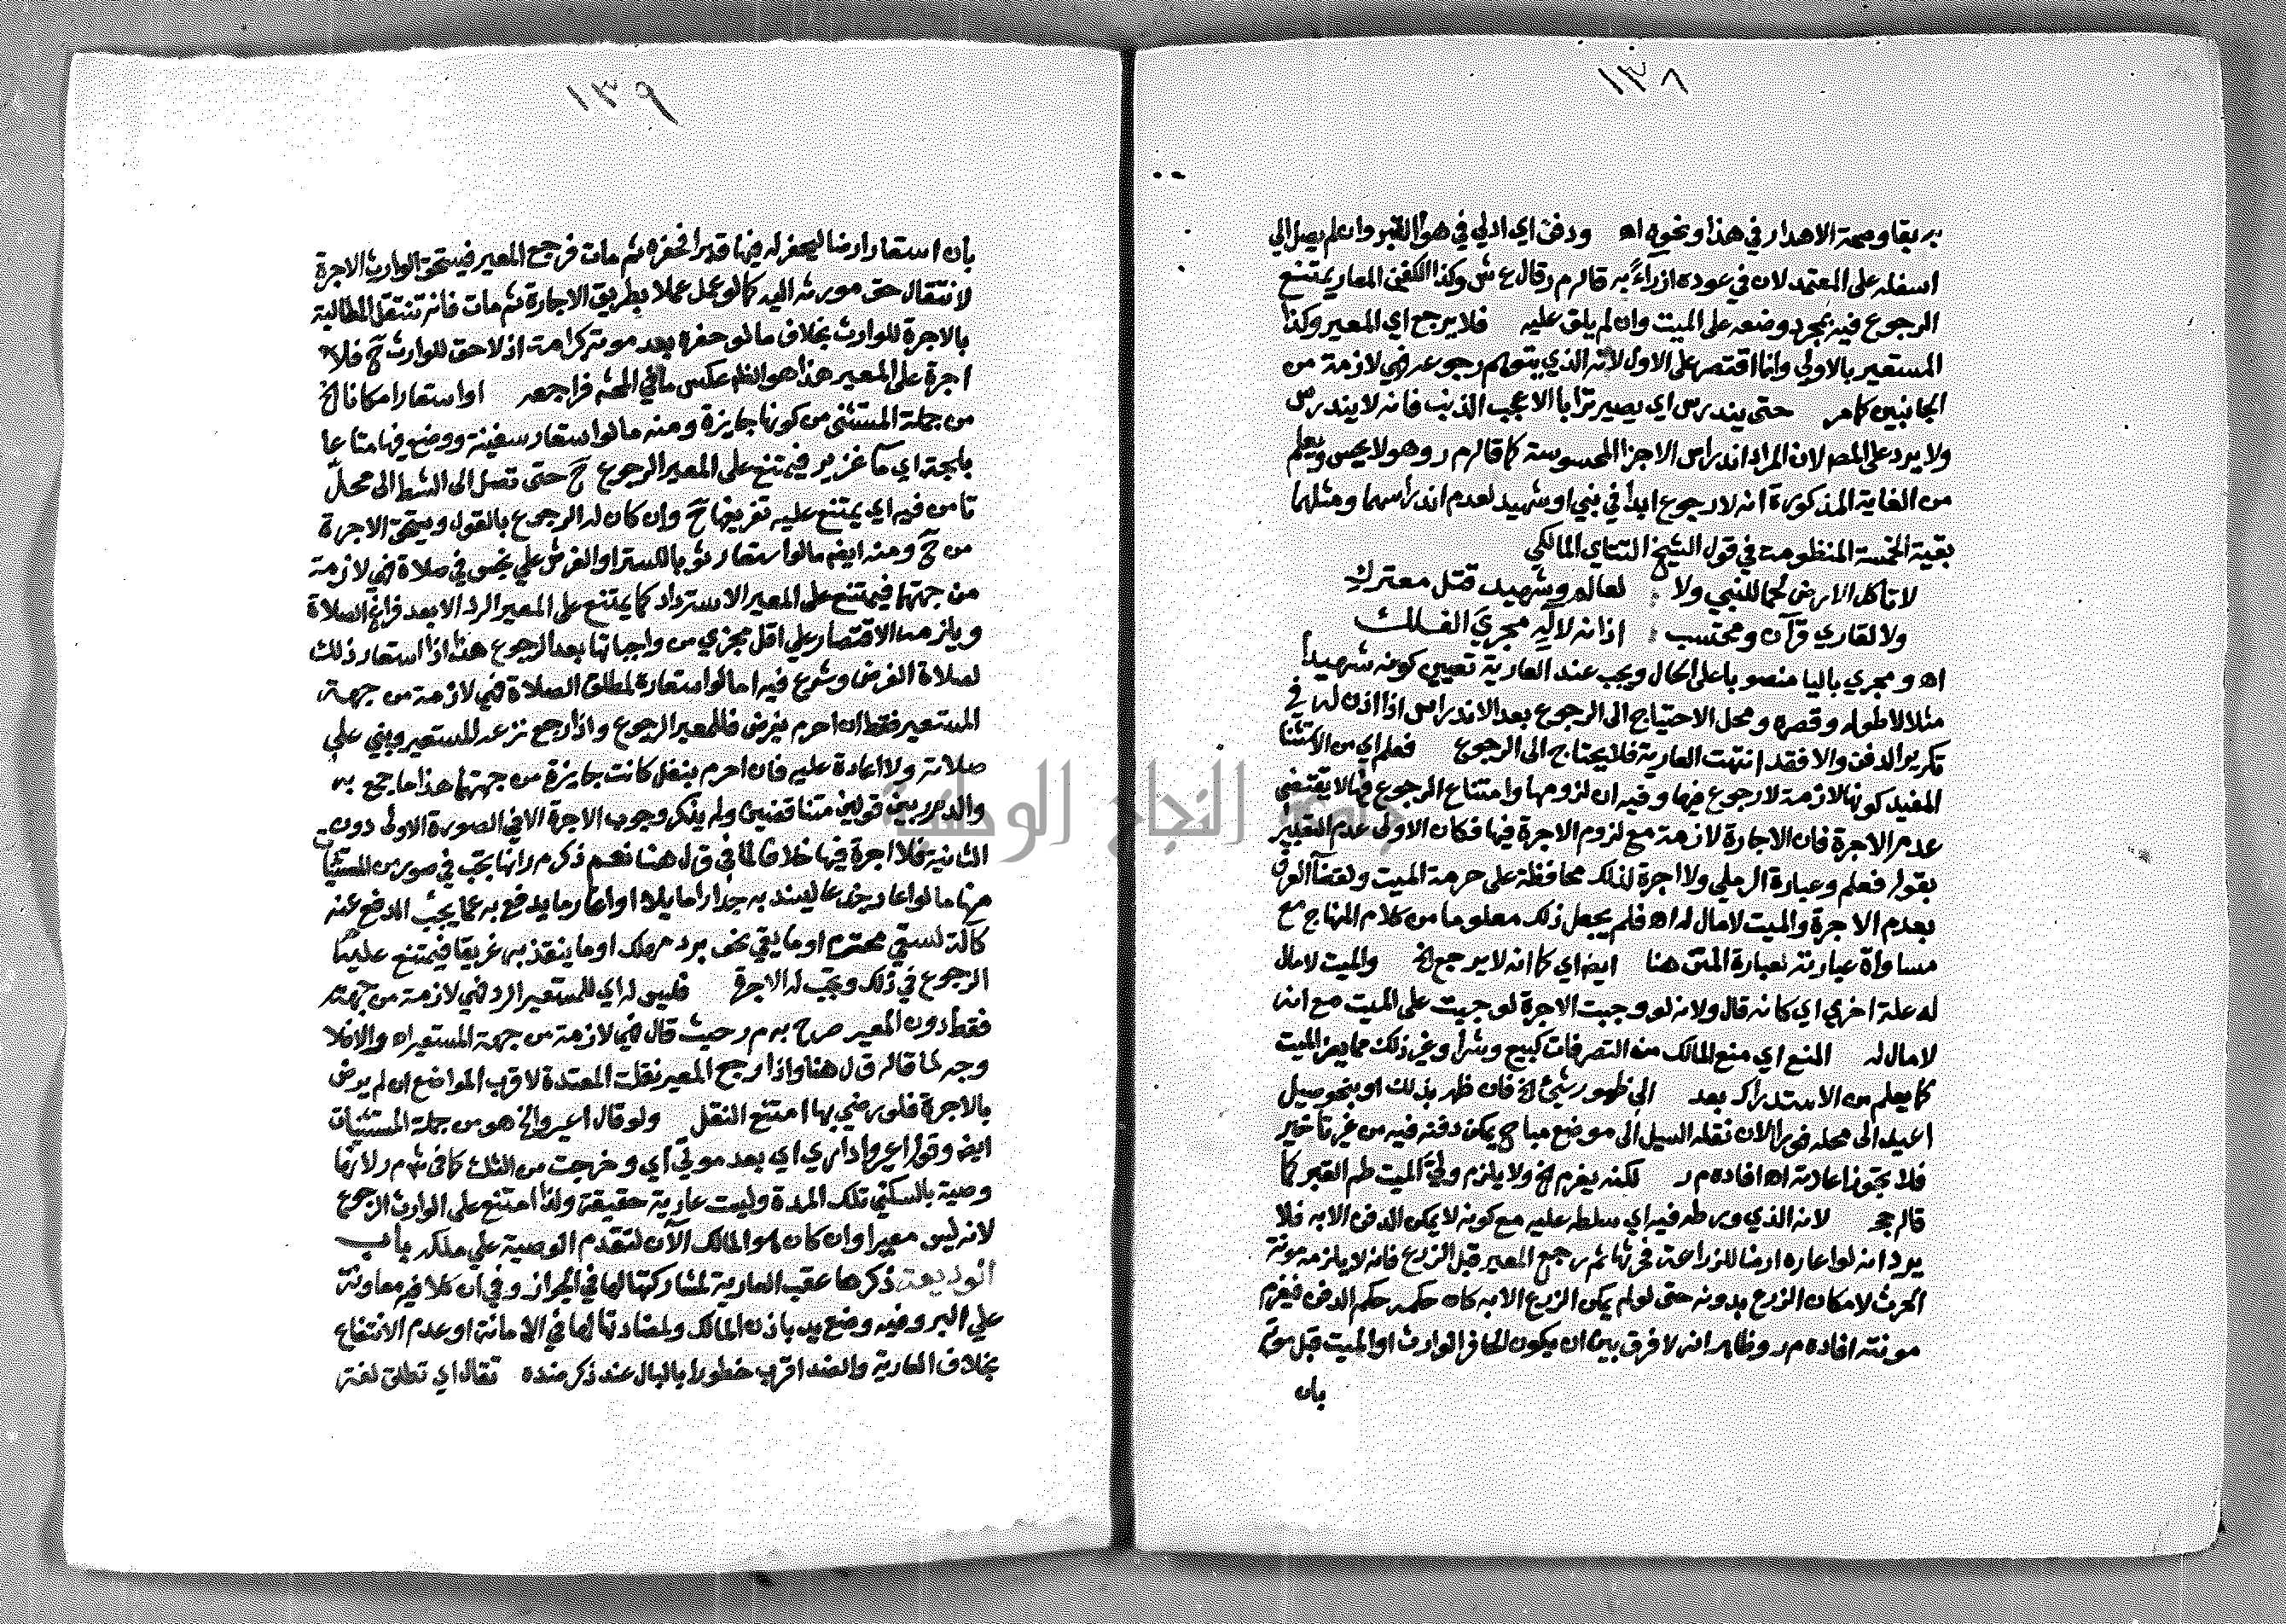 ١٣٨
بريقا ومحة الاهدار في هذا ونحوه اه ودفن اي ادلي في هوآ القبر وان لم يصل الي
اسفله على المعتمد لان في عوده ازراءً به قاله م ر قال ع ش وكذا الكفن المعار يمتنع
الرجوع فيه بمجرد وضعه على الميت وان لم يلق عليه فلا يرجع اي المعير وكذا
المستعير بالاولي وانما اقتصر على الاول لانه الذي يتوهم رجوعه فهي لازمة من
الجانبين كما مر حتى يندرس اي يصير ترابا الا عجب الذنب فانه لا يندرس
ولا يرد على المصـ لان المراد اندراس الاجزا المحسوسة كما قاله م ر وهو لا يحس ويعلم
من الغاية المذكورة انه لا رجوع ابدا في نبي او شهيد لعدم اندراسهما ومثلهما
بقية الخمسة المنظومة في قول الشيخ التتاي المالكي
لا تاكل الارض لحما للنبي ولا : لعالم وشهيد قتل معترك
ولا لقاري قرآن ومحتسب : اذانه لاله مجري الفلك
اه ومجري باليا منصوبا على الحال ويجب عند العارية تعيين كونه شهيدا
مثلا لا طوله وقصره ومحل الاحتياج الى الرجوع بعد الاندراس اذا اذن له في
تكرير الدفن والا فقد انتهت العارية فلا يحتاج الى الرجوع فعلم اي من الاستثنا
المفيد كونها لازمة لا رجوع فيها وفيه ان لزومها وامتناع الرجوع فيها لا يقتضي
عدم الاجرة فان الاجارة لازمة مع لزوم الاجرة فيها فكان الاولى عدم التعبير
بقوله فعلم وعبارة الرملي ولا اجرة لذلك محافظة على حرمة الميت ولقضآ العرف
بعدم الاجرة والميت لا مال له اه فلم يجعل ذلك معلوما من كلام المنهاج مع
مساواة عبارته لعبارة المتن هنا ايضا اي كما انه لا يرجع الخ والميت لا مال
له علة اخري اي كانه قال ولانه لو وجبت الاجرة لوجبت على الميت مع انه
لا مال له المنع اي منع المالك من التصرفات كبيع وشرأ وغير ذلك مما يضر الميت
كما يعلم من الاستدراك بعد الى ظهور شئ الخ فان ظهر بذلك او بنحو سيل
اعيد الى محله فورا الا ان نقله السيل الى موضع مباح يمكن دفنه فيه من غير تاخير
فلا يجوز اعادته اه افاده م ر لكنه يغرم الخ ولا يلزم وليّ الميت طم القبر كما
قاله حج لانه الذي ورطه فيه اي سلطه عليه مع كونه لا يمكن الدفن الا به فلا
يرد انه لو اعاره ارضا للزراعة فحرثها ثم رجع المعير قبل الزرع فانه لا يلزمه مونة
الحرث لامكان الزرع بدونه حتى لو لم يمكن الزرع الا به كان حكمه حكم الدفن فيغرم
مونته افاده م ر وظاهره انه لا فرق بين ان يكون الحافر الوارث او الميت قبل موته
بان
١٣٩
بان استعار ارضا ليحفر له فيها قبرا فحفره ثم مات فرجع المعير فيستحق الوارث الاجرة
لانتقال حق مورثه اليه كما لو عمل عملا بطريق الاجارة ثم مات فانه تنتقل المطالبة
بالاجرة للوارث بخلاف ما لو حفره بعد موته كرامة اذ لا حق للوارث ح فلا
اجرة على المعير هذا هو الظ عكس ما في المحشى فراجعه او استعار امكانا الخ
من جملة المستثنى من كونها جايزة ومنه ما لو استعار سفينة ووضع فيها متاعا
بلجة اي مآ غزير فيمتنع على المعير الرجوع ح حتى تصل الى الشط الى محل
تامن فيه اي يمتنع عليه تفريغها ح وان كان له الرجوع بالقول ويستحق الاجرة
من ح ومنه ايضا ما لو استعار ثوبا للستر او الفرش علي نجس في صلاة فهي لازمة
من جهتهما فيمتنع على المعير الاسترداد كما يمتنع على المعير الرد الا بعد فراغ الصلاة
ويلزمه الاقتصار علي اقل مجزي من واجباتها بعد الرجوع هذا اذا استعار ذلك
لصلاة الفرض وشرع فيه اما لو استعاره لمطلق الصلاة فهي لازمة من جهة
المستعير فقط ان احرم بفرض فللمعير الرجوع واذا رجع نزعه المستعير وبني على
صلاته ولا اعادة عليه فان احرم بنفل كانت جايزة من جهتهما هذا ما جمع به
والد م ر بين قولين متناقضين ولم يذكر وجوب الاجرة الا في الصورة الاولى دون
الثانية فلا اجرة فيها خلافا لما في ق ل هنا نعم ذكر م ر انها تجب في صور من المستثنيات
منها ما لو اعار جذعا ليسند به جدارا مايلا او اعار ما يدفع به عما يجب الدفع عنه
كآلة لسقي محترم او ما يقي نحو برد مهلك او ما ينقذ به غريقا فيمتنع علينا
الرجوع في ذلك وتجب له الاجرة فليس له اي للمستعير الرد فهي لازمة من جهته
فقط دون المعير صرح به م ر حيث قال فهي لازمة من جهة المستعير اه والا فلا
وجه لما قاله ق ل هنا واذا رجع المعير نقلت المعتدة لاقرب المواضع ان لم يرض
بالاجرة فلو رضي بها امتنع النقل ولو قال اعيروا الخ هو من جملة المستثنيات
ايضا وقوله اعيروا داري اي بعد موتي اي وخرجت من الثلث كما في شـ م ر لانها
وصية بالسكني تلك المدة وليست عارية حقيقة ولذا امتنع على الوارث الرجوع
لانه ليس معيرا وان كان هو المالك الآن لتقدم الوصية علي ملكه باب
الوديعة ذكرها عقب العارية لمشاركتها لها في الجواز وفي ان كلا فيه معاونة
علي البر وفيه وضع يد باذن المالك ولمضادتها لها في الامانة او عدم الانتفاع
بخلاف العارية والضد اقرب خطورا بالبال عند ذكر ضده تقال اي تطلق لغة